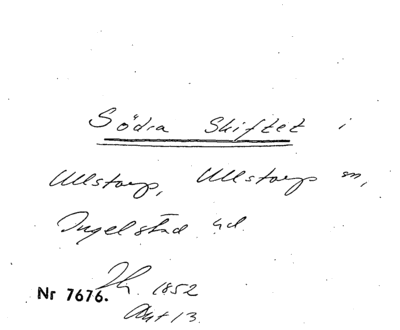 Södra Skiftet i
Ullstorp, Ullstorps sn,
Ingelstad hd.
1852
Nr 7676.
Akt 13.